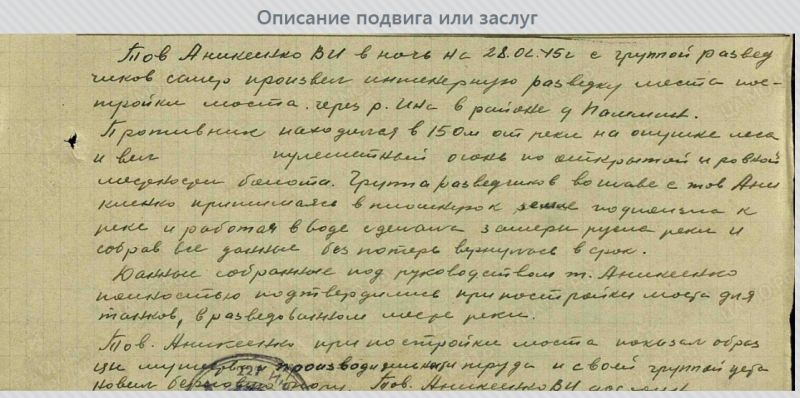 Описание подвига или заслуг
Тов Аникеенко ВИ в ночь на 28.02.45г с группой развед
чиков сапер произвел инженерную разведку места пос-
тройки моста. через р. Ина в районе д
Противник находился в 150м от реки на опушке леса
и вел пулеметный огонь по открытой и ровной
месности болота. Группа разведчиков во главе с тов Ани
кеенко прижимаясь к подползла к
реке и работая в воде сделала замеры русла реки и
собрав все данные без потерь вернулась в срок.
Данные собранные под руководством т. Аникеенко
полностью подтвердились при постройки моста для
танков, в разведованном месте реки.
Тов. Аникеенко при постройки моста показал образ
цы мужества и производительности труда и с своей группой уста
новил опору. Тов. Аникеенко ВИ